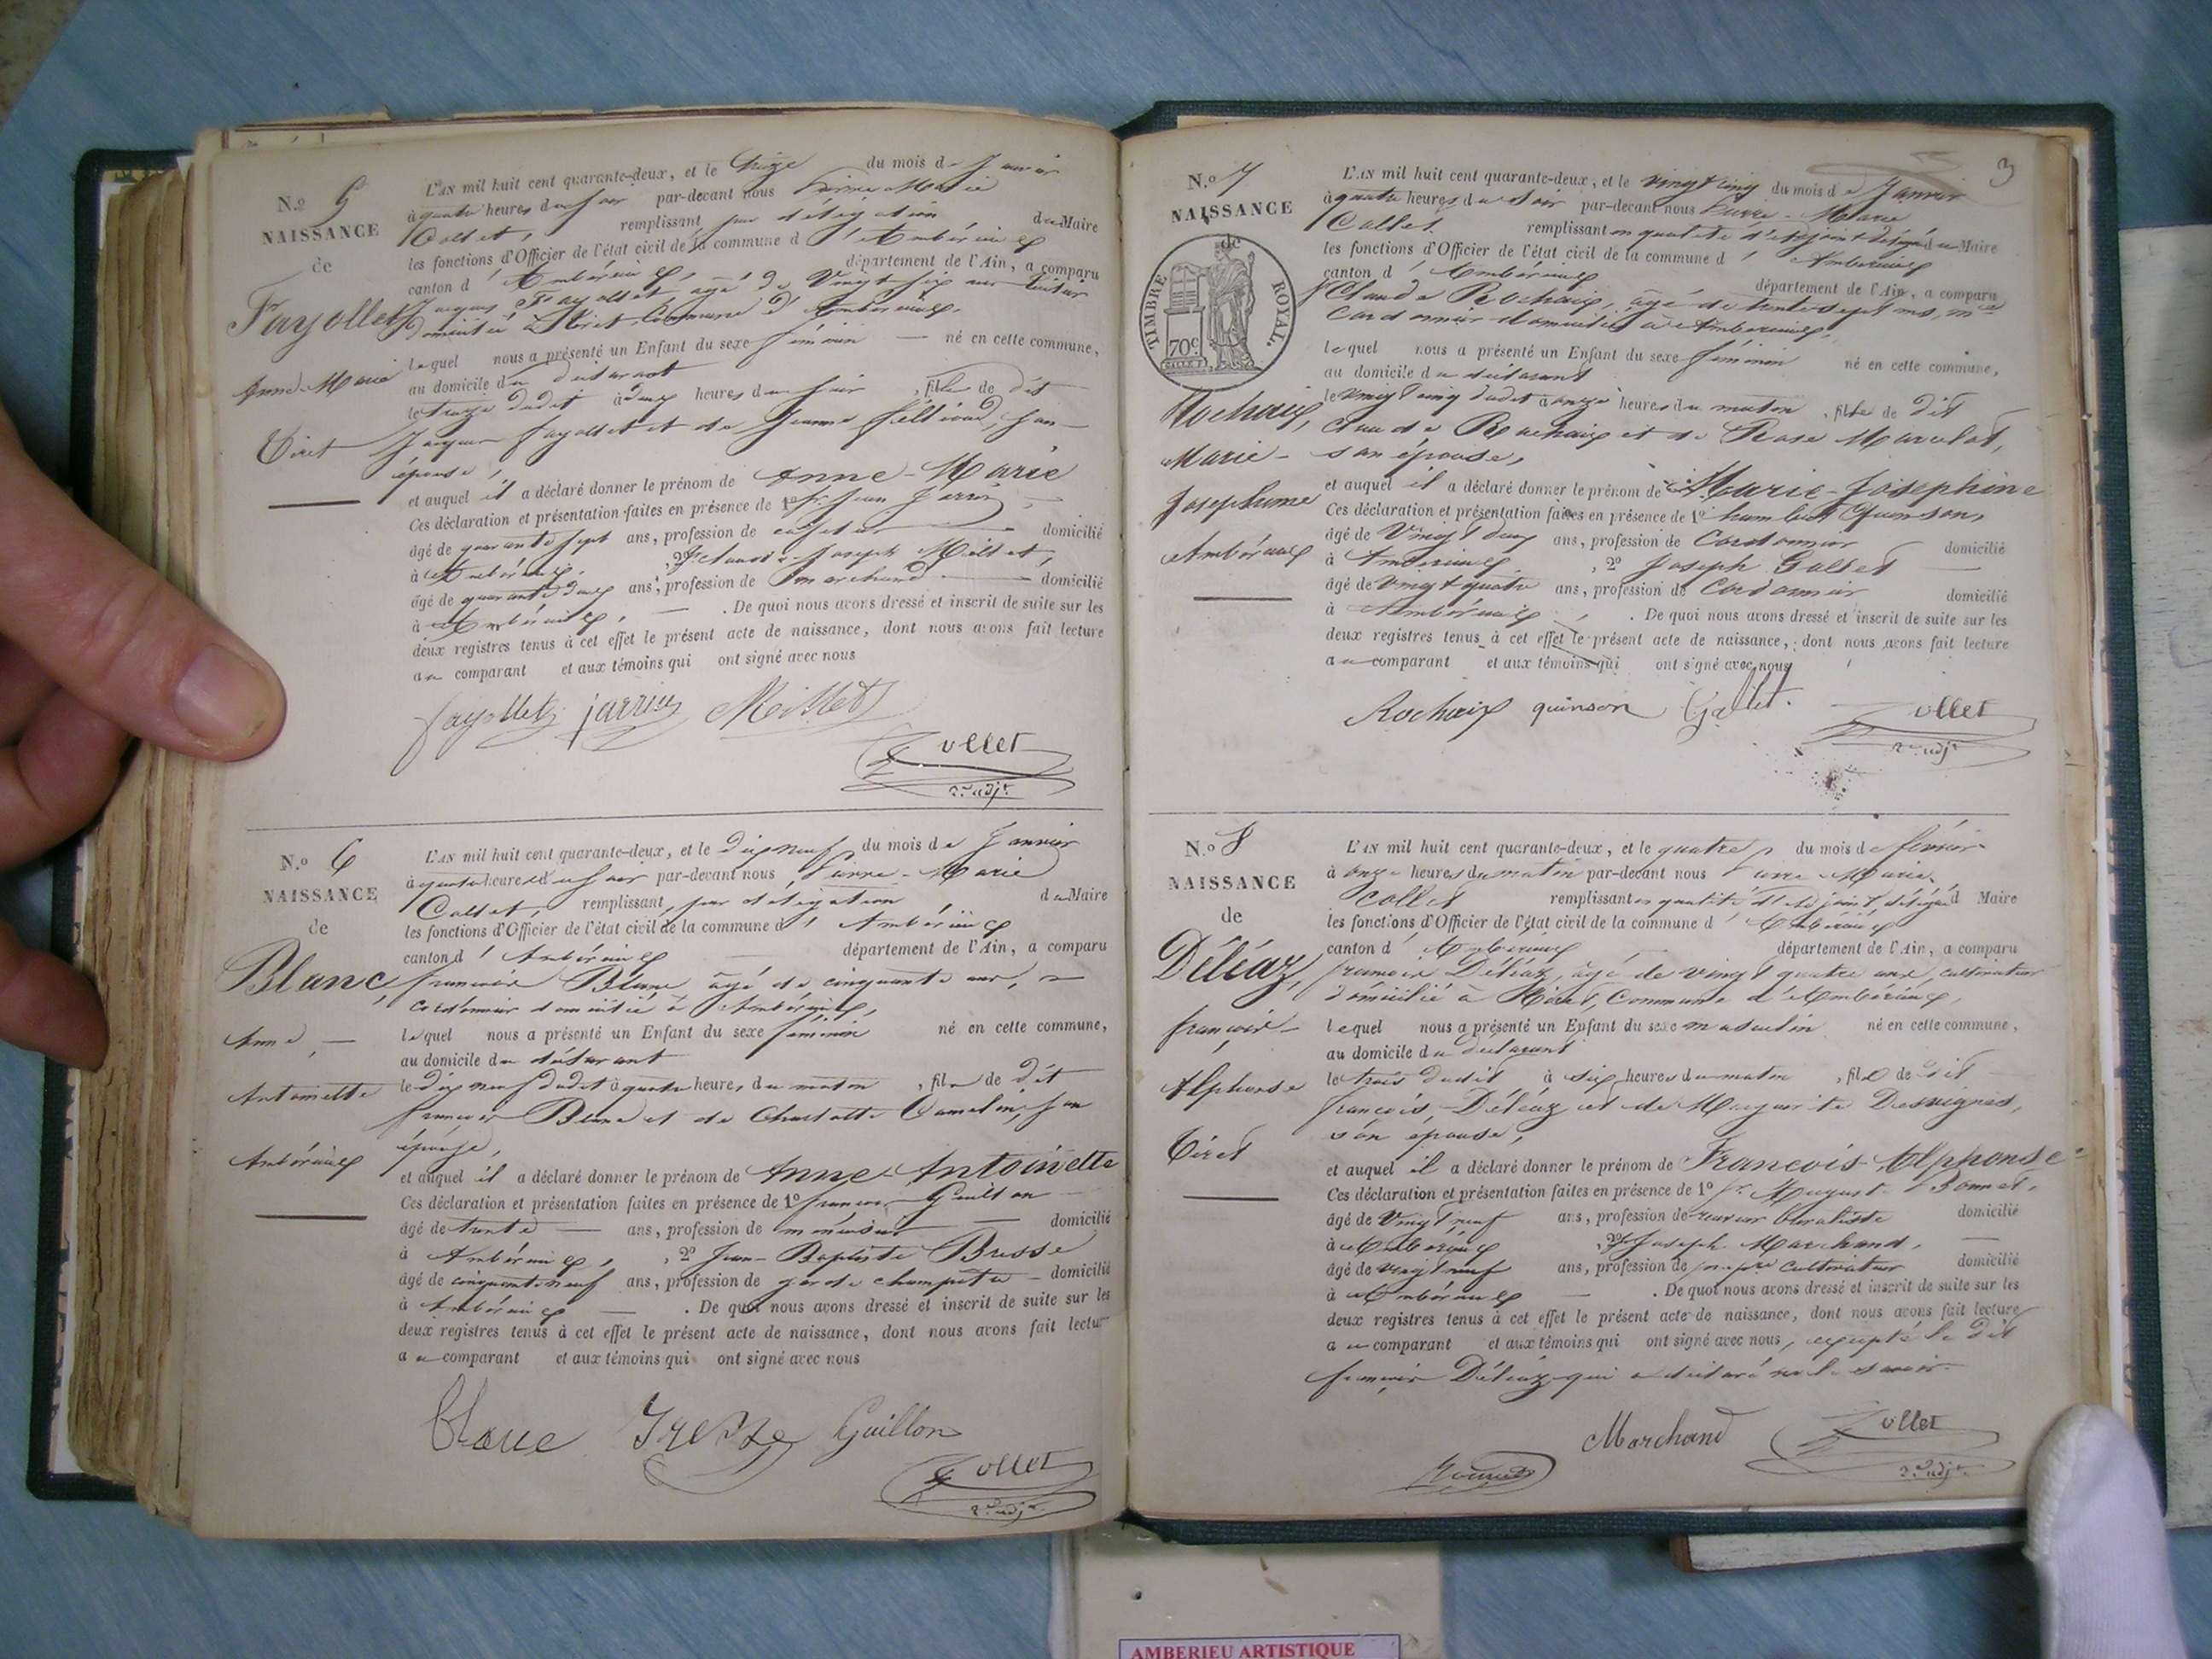 N.o 5
NAISSANCE
de
Fayollet
Anne Marie
Tiret
L'AN mil huit cent quarante-deux, et le treize du mois de Janvier
à quatre heures du soir par-devant nous Pierre Marie
Collet, remplissant par délégation du Maire
les fonctions d'Officier de l'état civil de la commune d'Ambérieux
canton d'Ambérieux, département de l'Ain, a comparu
Jacques Fayollet agé de Vingt six ans
domicilié à Tiret, Commune d'Ambérieux,
lequel nous a présenté un Enfant du sexe féminin né en cette commune,
au domicile du déclarant
le treize dudit à deux heures du soir, fille de dit
Jacques Fayollet et de Jeanne son
épouse,
et auquel il a déclaré donner le prénom de Anne-Marie
Ces déclaration et présentation faites en présence de 1º Sr. Jean Jarrin
âgé de quarante sept ans, profession de domicilié
à Ambérieux, 2º Sr. Claude-Joseph Millet,
âgé de quarante deux ans, profession de marchand domicilié
à Ambérieux, . De quoi nous avons dressé et inscrit de suite sur les
deux registres tenus à cet effet le présent acte de naissance, dont nous avons fait lecture
au comparant et aux témoins qui ont signé avec nous
fayollet jarrin Millet
Collet
2e adjt
N.o 6
NAISSANCE
de
Blanc,
Anne,
Antoinette
Ambérieux
L'AN mil huit cent quarante-deux, et le dix neuf du mois de Janvier
à quatre heures du soir par-devant nous Pierre-Marie
Collet, remplissant, par délégation du Maire
les fonctions d'Officier de l'état civil de la commune d'Ambérieux
canton d'Ambérieux département de l'Ain, a comparu
françois Blanc âgé de cinquante ans,
cordonnier domicilié à Ambérieux,
lequel nous a présenté un Enfant du sexe féminin né en cette commune,
au domicile du déclarant
le dix neuf dudit à quatre heures du matin, fille de dit
françois Blanc et de Charlotte Camelin, son
épouse,
et auquel il a déclaré donner le prénom de Anne-Antoinette
Ces déclaration et présentation faites en présence de 1º françois Guillon
âgé de trente ans, profession de menuisier domicilié
à Ambérieux, 2º Jean-Baptiste
âgé de cinquante neuf ans, profession de garde champêtre domicilié
à Ambérieux . De quoi nous avons dressé et inscrit de suite sur les
deux registres tenus à cet effet le présent acte de naissance, dont nous avons fait lecture
au comparant et aux témoins qui ont signé avec nous
blanc Guillon
Collet
2e adjt
3
N.o 7
NAISSANCE
de
TIMBRE ROYAL.
70c
Rochaix,
Marie-
Josephine
Ambérieux
L'AN mil huit cent quarante-deux, et le vingt cinq du mois de Janvier
à quatre heures du soir par-devant nous Pierre-Marie
Collet. remplissant en qualité d'adjoint délégué du Maire
les fonctions d'Officier de l'état civil de la commune d'Ambérieux
canton d'Ambérieux département de l'Ain, a comparu
Claude Rochaix, âgé de trente sept ans, me
Cordonnier domicilié à Ambérieux,
lequel nous a présenté un Enfant du sexe féminin né en cette commune,
au domicile du déclarant
le vingt cinq dudit à onze heures du matin, fille de dit
Claude Rochaix et de Rose Marcelat,
son épouse,
et auquel il a déclaré donner le prénom de Marie-Josephine
Ces déclaration et présentation faites en présence de 1º humbert Quinson,
âgé de Vingt deux ans, profession de Cordonnier domicilié
à Ambérieux, 2º Joseph Gallet
âgé de vingt quatre ans, profession de Cordonnier domicilié
à Ambérieux, . De quoi nous avons dressé et inscrit de suite sur les
deux registres tenus à cet effet le présent acte de naissance, dont nous avons fait lecture
au comparant et aux témoins qui ont signé avec nous
Rochaix quinson Gallet.
Collet
2e adjt
N.o 8
NAISSANCE
de
Déléaz,
françois-
Alphonse
Tiret
L'AN mil huit cent quarante-deux, et le quatre du mois de février
à onze heures du matin par-devant nous Pierre Marie
Collet remplissant en qualité d'adjoint délégué d Maire
les fonctions d'Officier de l'état civil de la commune d'Ambérieux
canton d'Ambérieux département de l'Ain, a comparu
françois Déléaz, âgé de vingt quatre ans, cultivateur
domicilié à Tiret, Commune d'Ambérieux,
lequel nous a présenté un Enfant du sexe masculin né en cette commune,
au domicile du déclarant
le trois dudit à six heures du matin, fils de dit
françois Déléaz et de Marguerite Desvignes,
son épouse,
et auquel il a déclaré donner le prénom de François-Alphonse
Ces déclaration et présentation faites en présence de 1º Sr. August Bonnet,
âgé de Vingt neuf ans, profession de receveur buraliste domicilié
à Ambérieux 2º Joseph Marchand,
âgé de vingt neuf ans, profession de propre cultivateur domicilié
à Ambérieux . De quoi nous avons dressé et inscrit de suite sur les
deux registres tenus à cet effet le présent acte de naissance, dont nous avons fait lecture
au comparant et aux témoins qui ont signé avec nous, excepté le dit
françois Déléaz qui a déclaré ne le savoir.
Bonnet Marchand Collet
2e adjt.
AMBERIEU ARTISTIQUE